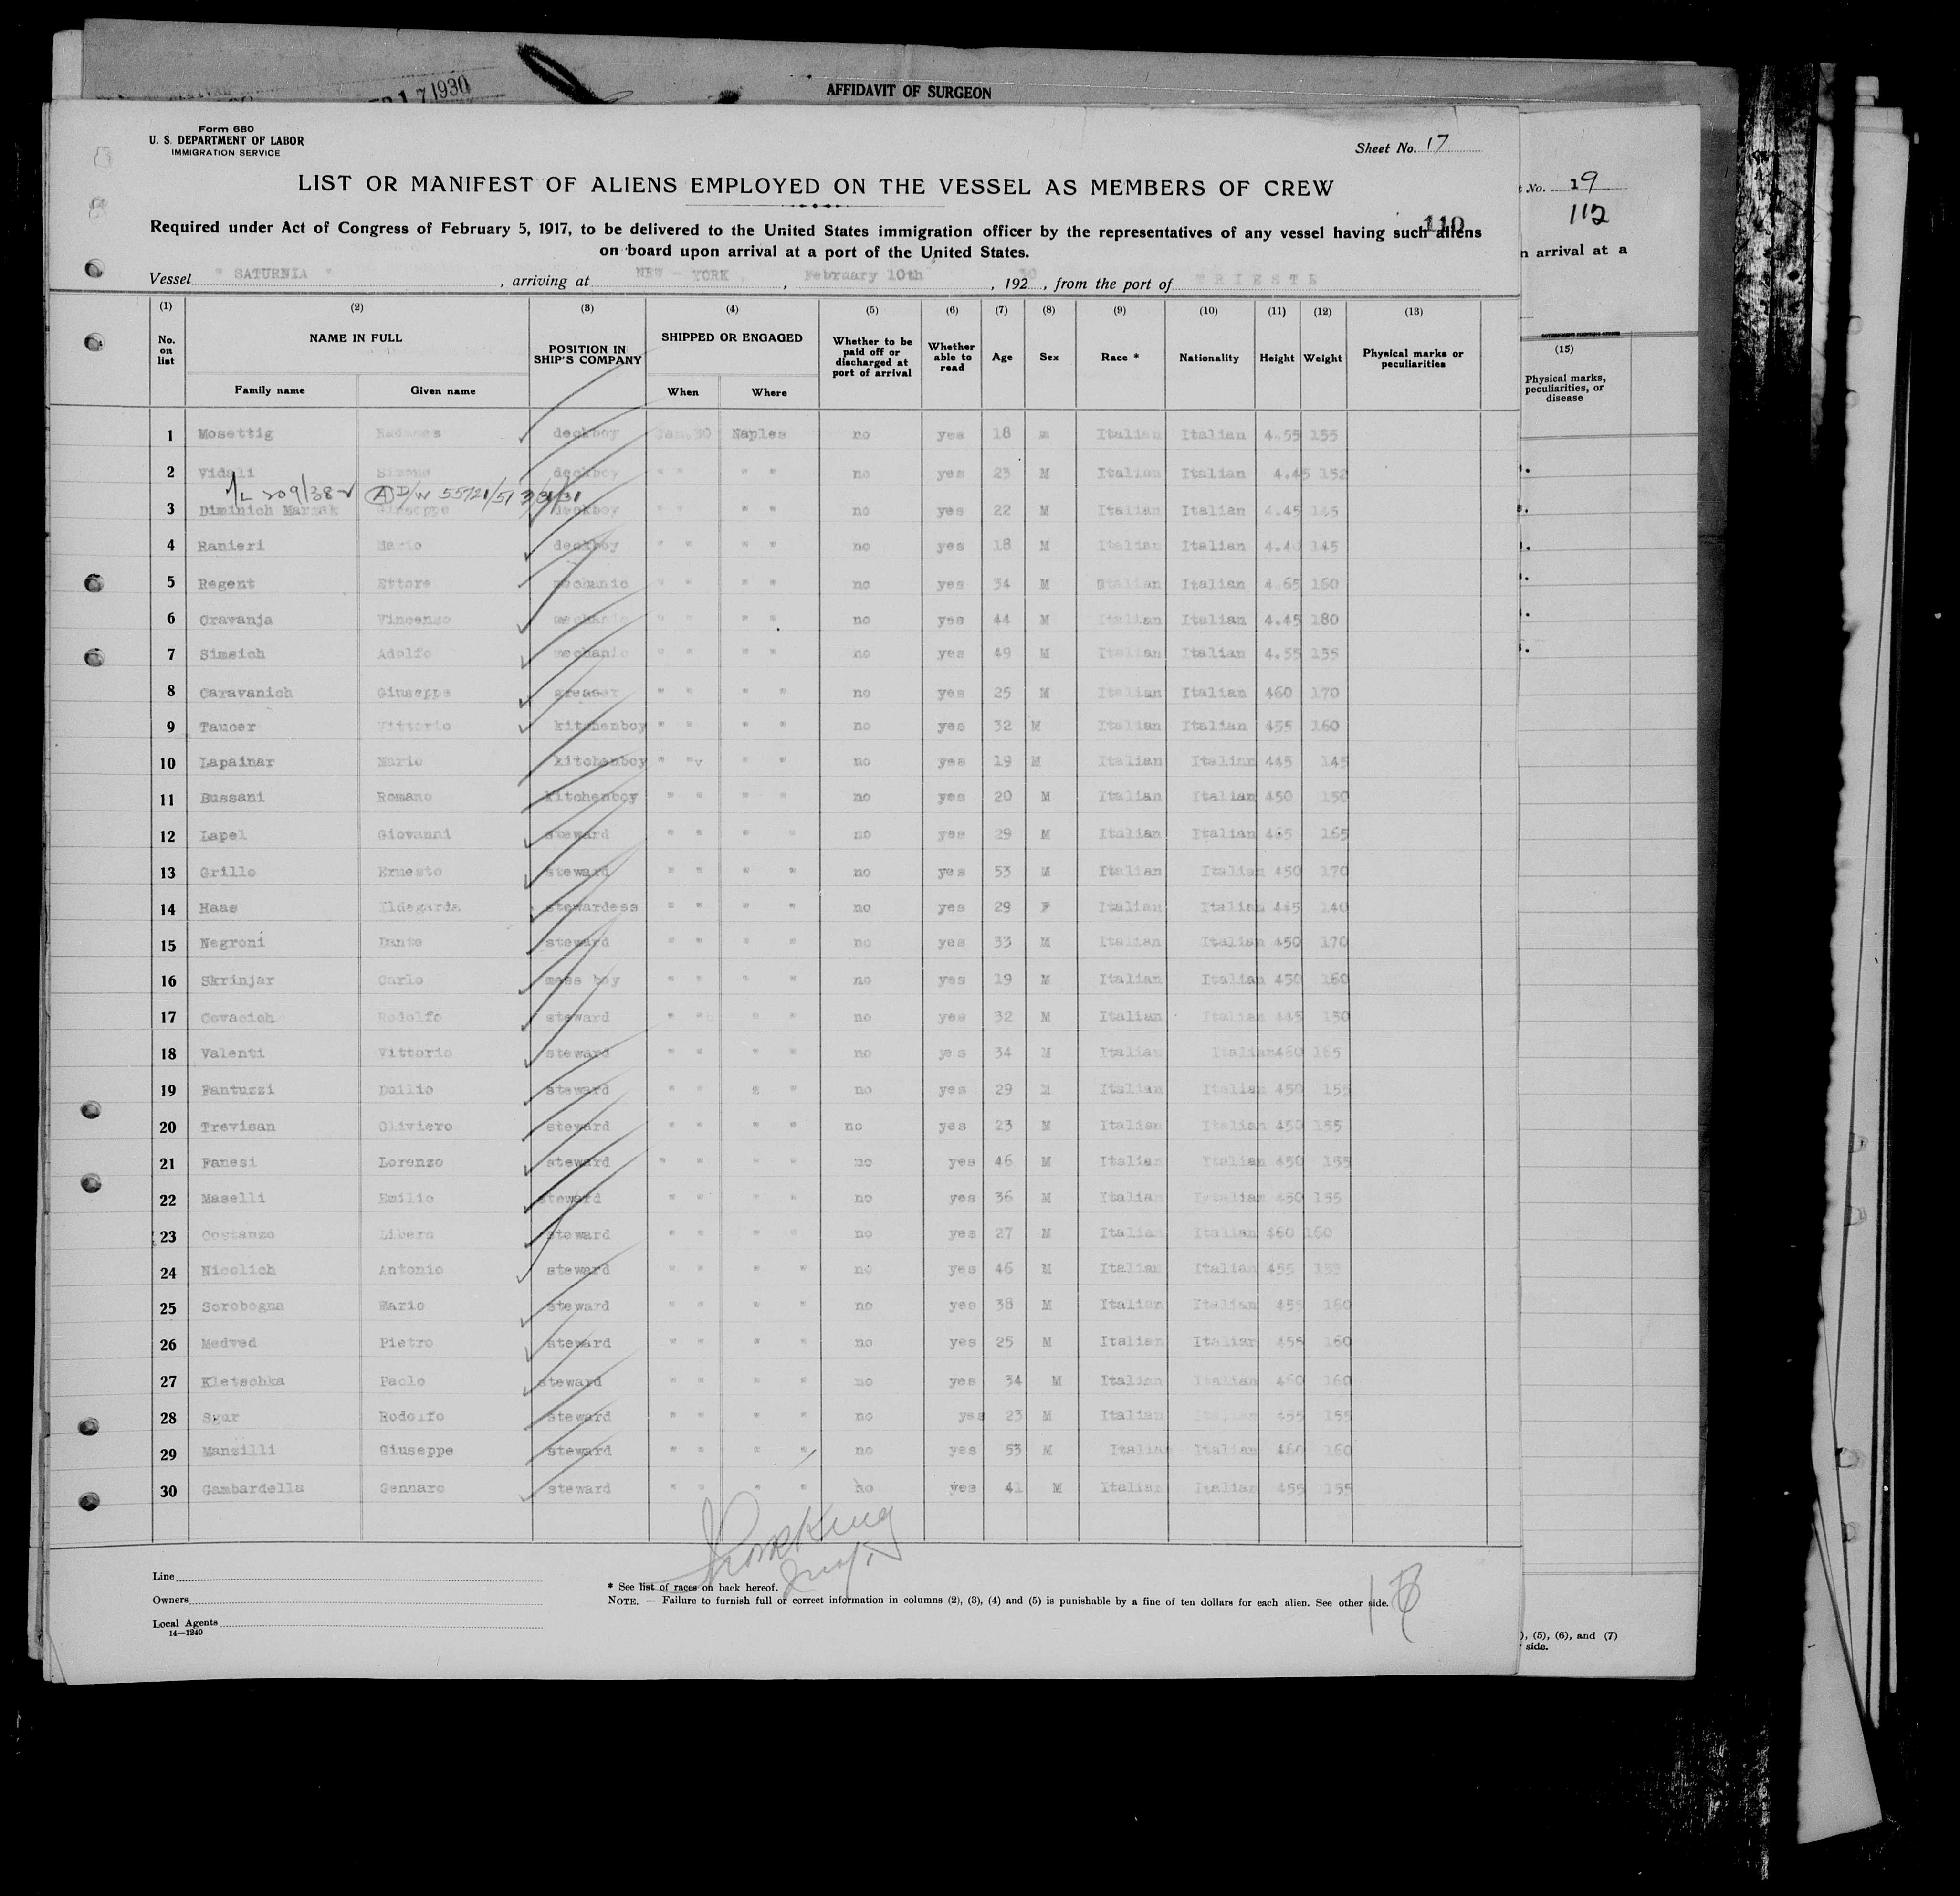 17 1930
AFFIDAVIT OF SURGEON
Form 680
U. S. DEPARTMENT OF LABOR
IMMIGRATION SERVICE
Sheet No. 17
LIST OR MANIFEST OF ALIENS EMPLOYED ON THE VESSEL AS MEMBERS OF CREW
110
Required under Act of Congress of February 5, 1917, to be delivered to the United States immigration officer by the representatives of any vessel having such aliens
on board upon arrival at a port of the United States.
Vessel " SATURNIA " , arriving at NEW - YORK , February 10th , 192 30 , from the port of TRIESTE
(1) (2) (3) (4) (5) (6) (7) (8) (9) (10) (11) (12) (13)
No. on list NAME IN FULL Family name Given name POSITION IN SHIP'S COMPANY SHIPPED OR ENGAGED When Where Whether to be paid off or discharged at port of arrival Whether able to read Age Sex Race * Nationality Height Weight Physical marks or peculiarities
1 Mosettig deckboy Jan.30 Naples no yes 18 m Italian Italian 4.55 155
2 Vidali Simone deckboy " " " " no yes 23 M Italian Italian 4.45 152
209/38 A D/W 55721/51 3/31/31
3 Diminich Giuseppe deckboy " " " " no yes 22 M Italian Italian 4.45 145
4 Ranieri Mario deckboy " " " " no yes 18 M Italian Italian 145
5 Regent Ettore mechanic " " " " no yes 34 M Italian Italian 4.65 160
6 Cravanja Vincenzo mechanic " " " " no yes 44 M Italian Italian 4.45 180
7 Simsich Adolfo mechanic " " " " no yes 49 M Italian Italian 4.55 155
8 Caravanich Giuseppe greaser " " " " no yes 25 M Italian Italian 460 170
9 Taucer Vittorio kitchenboy " " " " no yes 32 M Italian Italian 455 160
10 Lapainar Mario kitchenboy " " " " no yes 19 M Italian Italian 445 145
11 Bussani Romano kitchenboy " " " " no yes 20 M Italian Italian 450 150
12 Lapel Giovanni steward " " " " no yes 29 M Italian Italian 165
13 Grillo Ernesto steward " " " " no yes 53 M Italian Italian 450 170
14 Haas Ildegarda stewardess " " " " no yes 29 F Italian Italian 445 140
15 Negroni Dante steward " " " " no yes 33 M Italian Italian 450 170
16 Skrinjar Carlo mess boy " " " " no yes 19 M Italian Italian 450 160
17 Covacich Rodolfo steward " " " " no yes 32 M Italian Italian 445 150
18 Valenti Vittorio steward " " " " no yes 34 M Italian Italian 460 165
19 Fantuzzi Duilio steward " " " " no yes 29 M Italian Italian 450 155
20 Trevisan Oliviero steward " " " " no yes 23 M Italian Italian 450 155
21 Fanesi Lorenzo steward " " " " no yes 46 M Italian Italian 450 155
22 Maselli Emilio steward " " " " no yes 36 M Italian 450 155
23 Costanzo Libero steward " " " " no yes 27 M Italian Italian 460 160
24 Nicolich Antonio steward " " " " no yes 46 M Italian Italian 455 155
25 Scrobogna Mario steward " " " " no yes 38 M Italian Italian 455 160
26 Medved Pietro steward " " " " no yes 25 M Italian Italian 455 160
27 Kletschka Paolo steward " " " " no yes 34 M Italian Italian 460 160
28 Sgur Rodolfo steward " " " " no yes 23 M Italian Italian 455 155
29 Mansilli Giuseppe steward " " " " no yes 53 M Italian Italian 460 160
30 Gambardella Gennaro steward " " " " no yes 41 M Italian Italian 455 155
Line
Owners
Local Agents
14—1240
* See list of races on back hereof.
NOTE. — Failure to furnish full or correct information in columns (2), (3), (4) and (5) is punishable by a fine of ten dollars for each alien. See other side.
No. 19
112
n arrival at a
(15)
Physical marks, peculiarities, or disease
), (5), (6), and (7)
side.